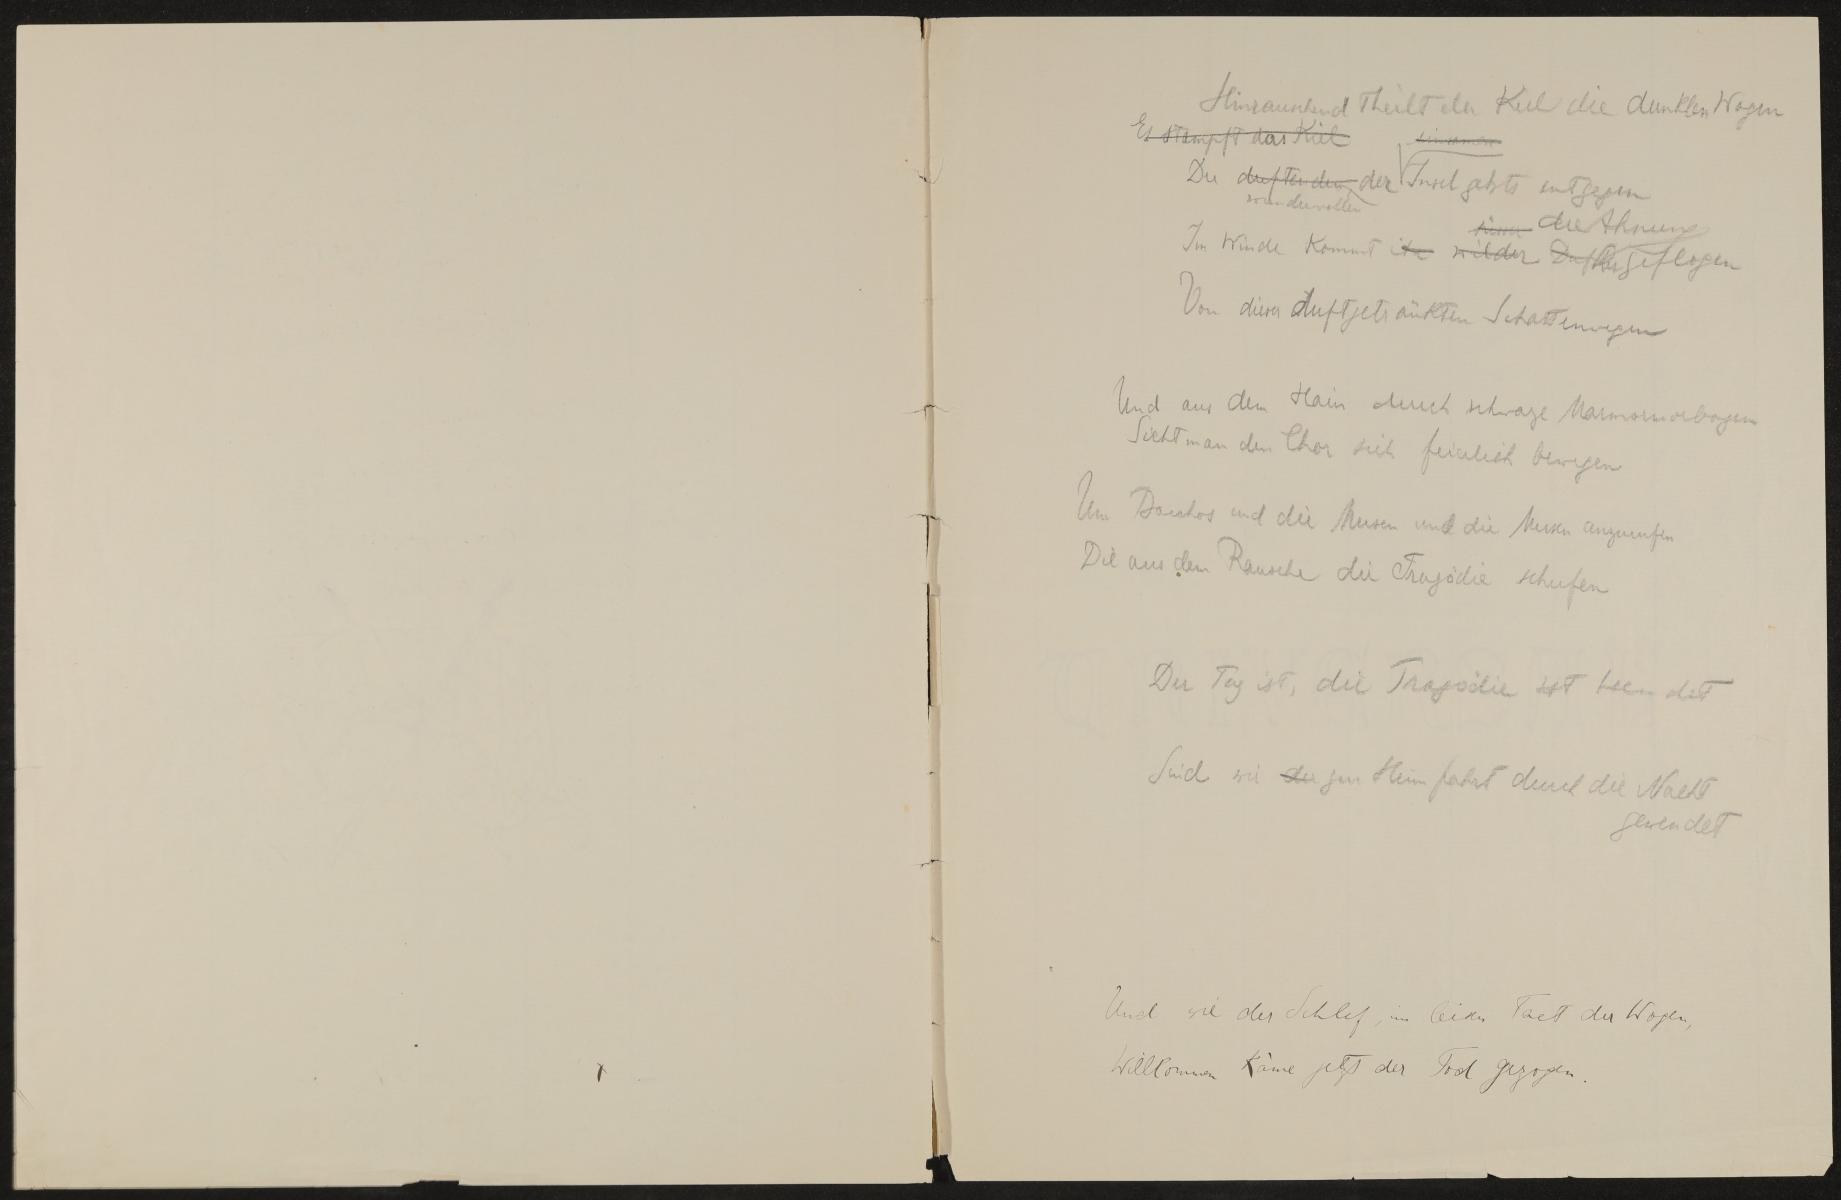 Hinrauschend Theilt der Kiel die dunklen Wogen
Es stampft das Kiel einsamen
Der duftenden der Insel gehts entgegen
wundervollen
die Ahnung
Im Winde kommt wilder Duft hergeflogen
Von diesen duftgetränkten Schattenwegen
Und aus dem Hain durch schwaze Marmormorbogen
Sieht man den Chor sich feierlich bewegen
Um Bacchos und die Musen und die Musen anzurufen
Die aus dem Rausche die Tragödie schufen
Der Tag ist, die Tragödie ist beendet
Sind wir der zur Heimfahrt durch die Nacht
gewendet
Und wie der Schlaf, im leisen Tact der Wogen,
Willkommen käme jetzt der Tod gezogen.